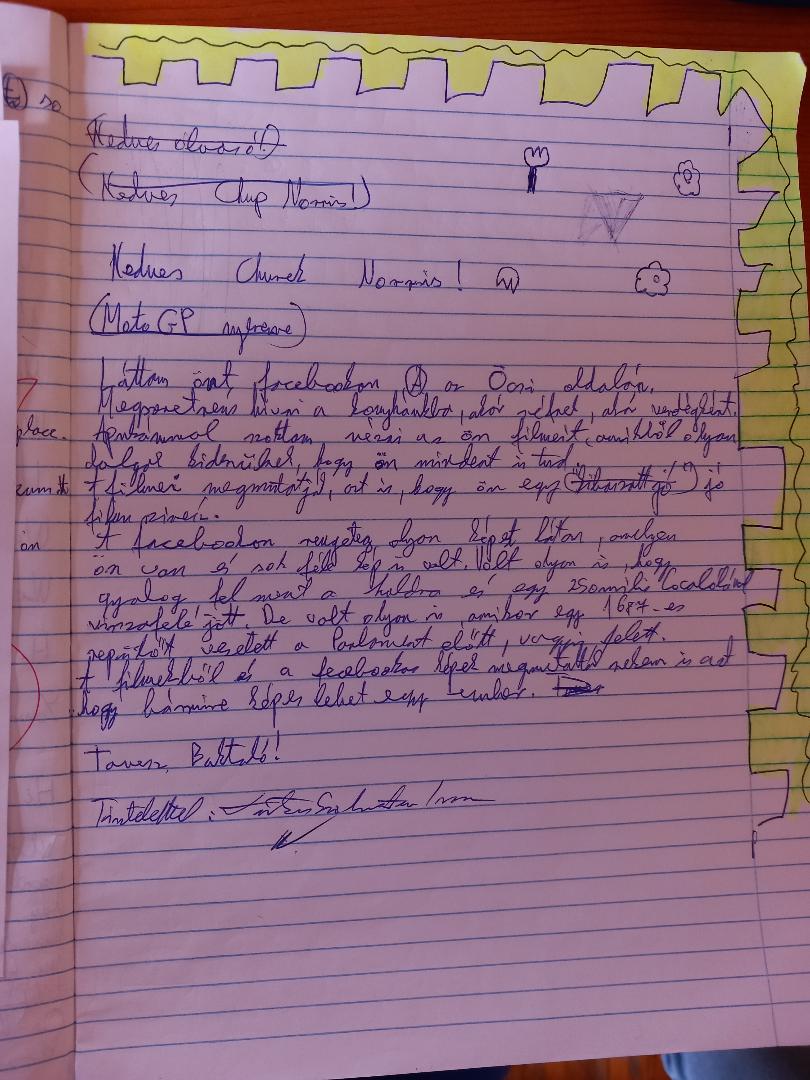 so
Kedves olvasó!)
(Kedves Chup Norris!)
Kedves Chunck Norris!
(Moto GP nyertese)
Láttam önt facebookon, A az Öcsi oldalán.
Megszeretném hívni a konyhánkba, akár séfnek, akár vendégként.
Apukámmal szoktam nézni az ön filmeit, amikből olyan
dolgok kiderülnek, hogy ön mindent is tud.
A filmei megmutatják, azt is, hogy ön egy jó
film színész.
A facebookon rengeteg olyan képet látok, amelyen
ön van és sok féle kép is volt. Volt olyan is, hogy
gyalog fel ment a holdra és egy 250 milis Cocacolával
visszafelé jött. De volt olyan is amikor egy 1687-es
repülőt vezetett a Parlament előtt, vagyis felett.
A filmekből és a facebookos képek megmutatták nekem is azt
hogy bármire képes lehet egy ember.
place.
ön
Tisztelettel: